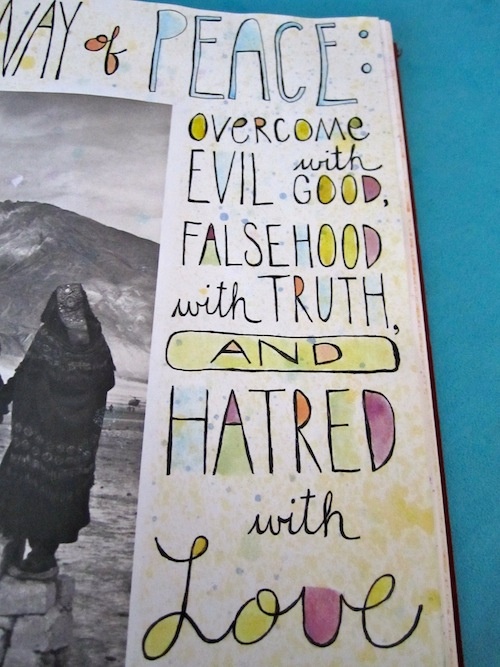 WAY of PEACE:
OVERCOME
EVIL with
GOOD,
FALSEHOOD
with TRUTH,
AND
HATRED
with
Love